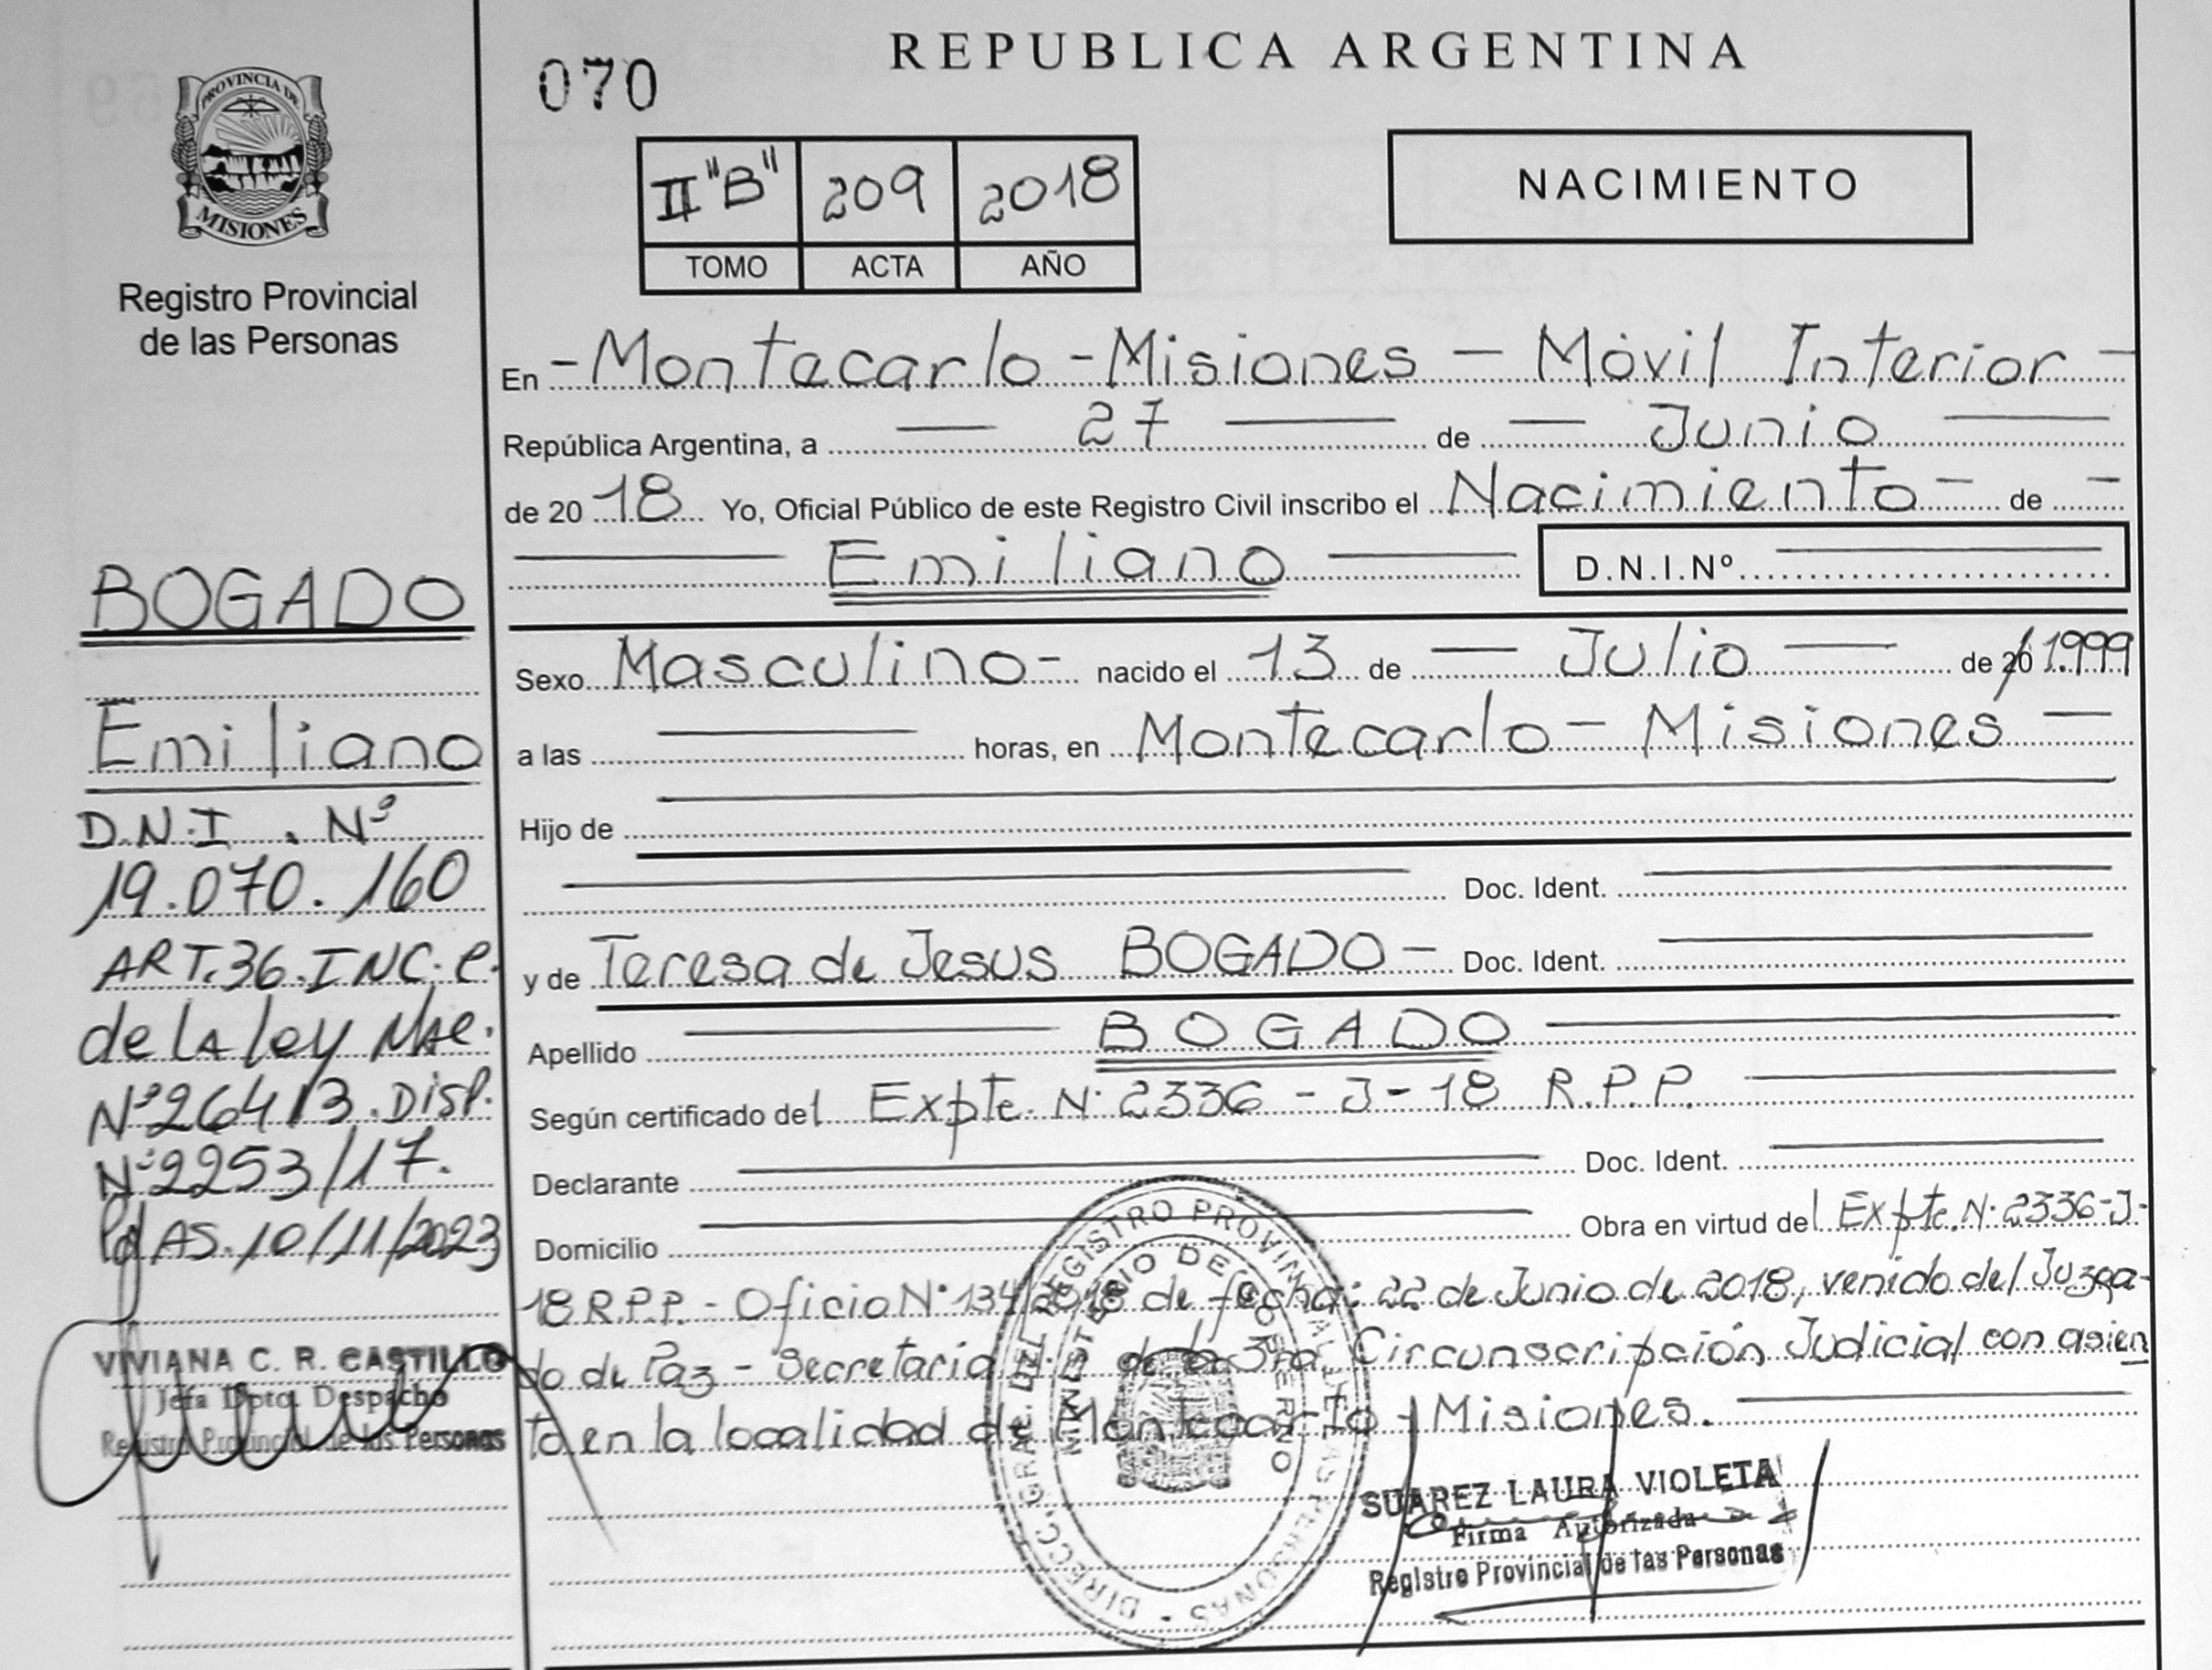 PROVINCIA DE
MISIONES
Registro Provincial
de las Personas
BOGADO
Emiliano
D.N.I. Nº
19.070.160
ART.36.INC.e.
de LA ley
Nº26413.Disp.
Nº2253/17.
AS.10/11/2023
VIVIANA C. R. CASTILLO
Jefa Dpto. Despacho
Registro Provincial de las Personas
070
REPUBLICA ARGENTINA
II "B" 209 2018
TOMO ACTA AÑO
NACIMIENTO
En - Montecarlo - Misiones - Móvil Interior -
República Argentina, a — 27 — de — Junio —
de 20 18 Yo, Oficial Público de este Registro Civil inscribo el Nacimiento - de -
— Emiliano — D.N.I.Nº —
Sexo Masculino - nacido el 13 de — Julio — de 20 1999
a las — horas, en Montecarlo - Misiones —
Hijo de —
— Doc. Ident. —
y de Teresa de Jesus BOGADO - Doc. Ident. —
Apellido — BOGADO —
Según certificado del Expte. N° 2336 - J - 18 R.P.P. —
Declarante — Doc. Ident. —
Domicilio — Obra en virtud del Expte. N° 2336-J-
18 R.P.P. - Oficio N° 134/2018 de fecha: 22 de Junio de 2018, venido del Juzga-
do de Paz - Secretaria de la 3ra. Circunscripción Judicial con asien
to en la localidad de Montecarlo - Misiones. —
DIRECC. GRAL. DEL REGISTRO PROVINCIAL DE LAS PERSONAS
MINISTERIO DE GOBIERNO
SUAREZ LAURA VIOLETA
Firma Autorizada
Registro Provincial de las Personas